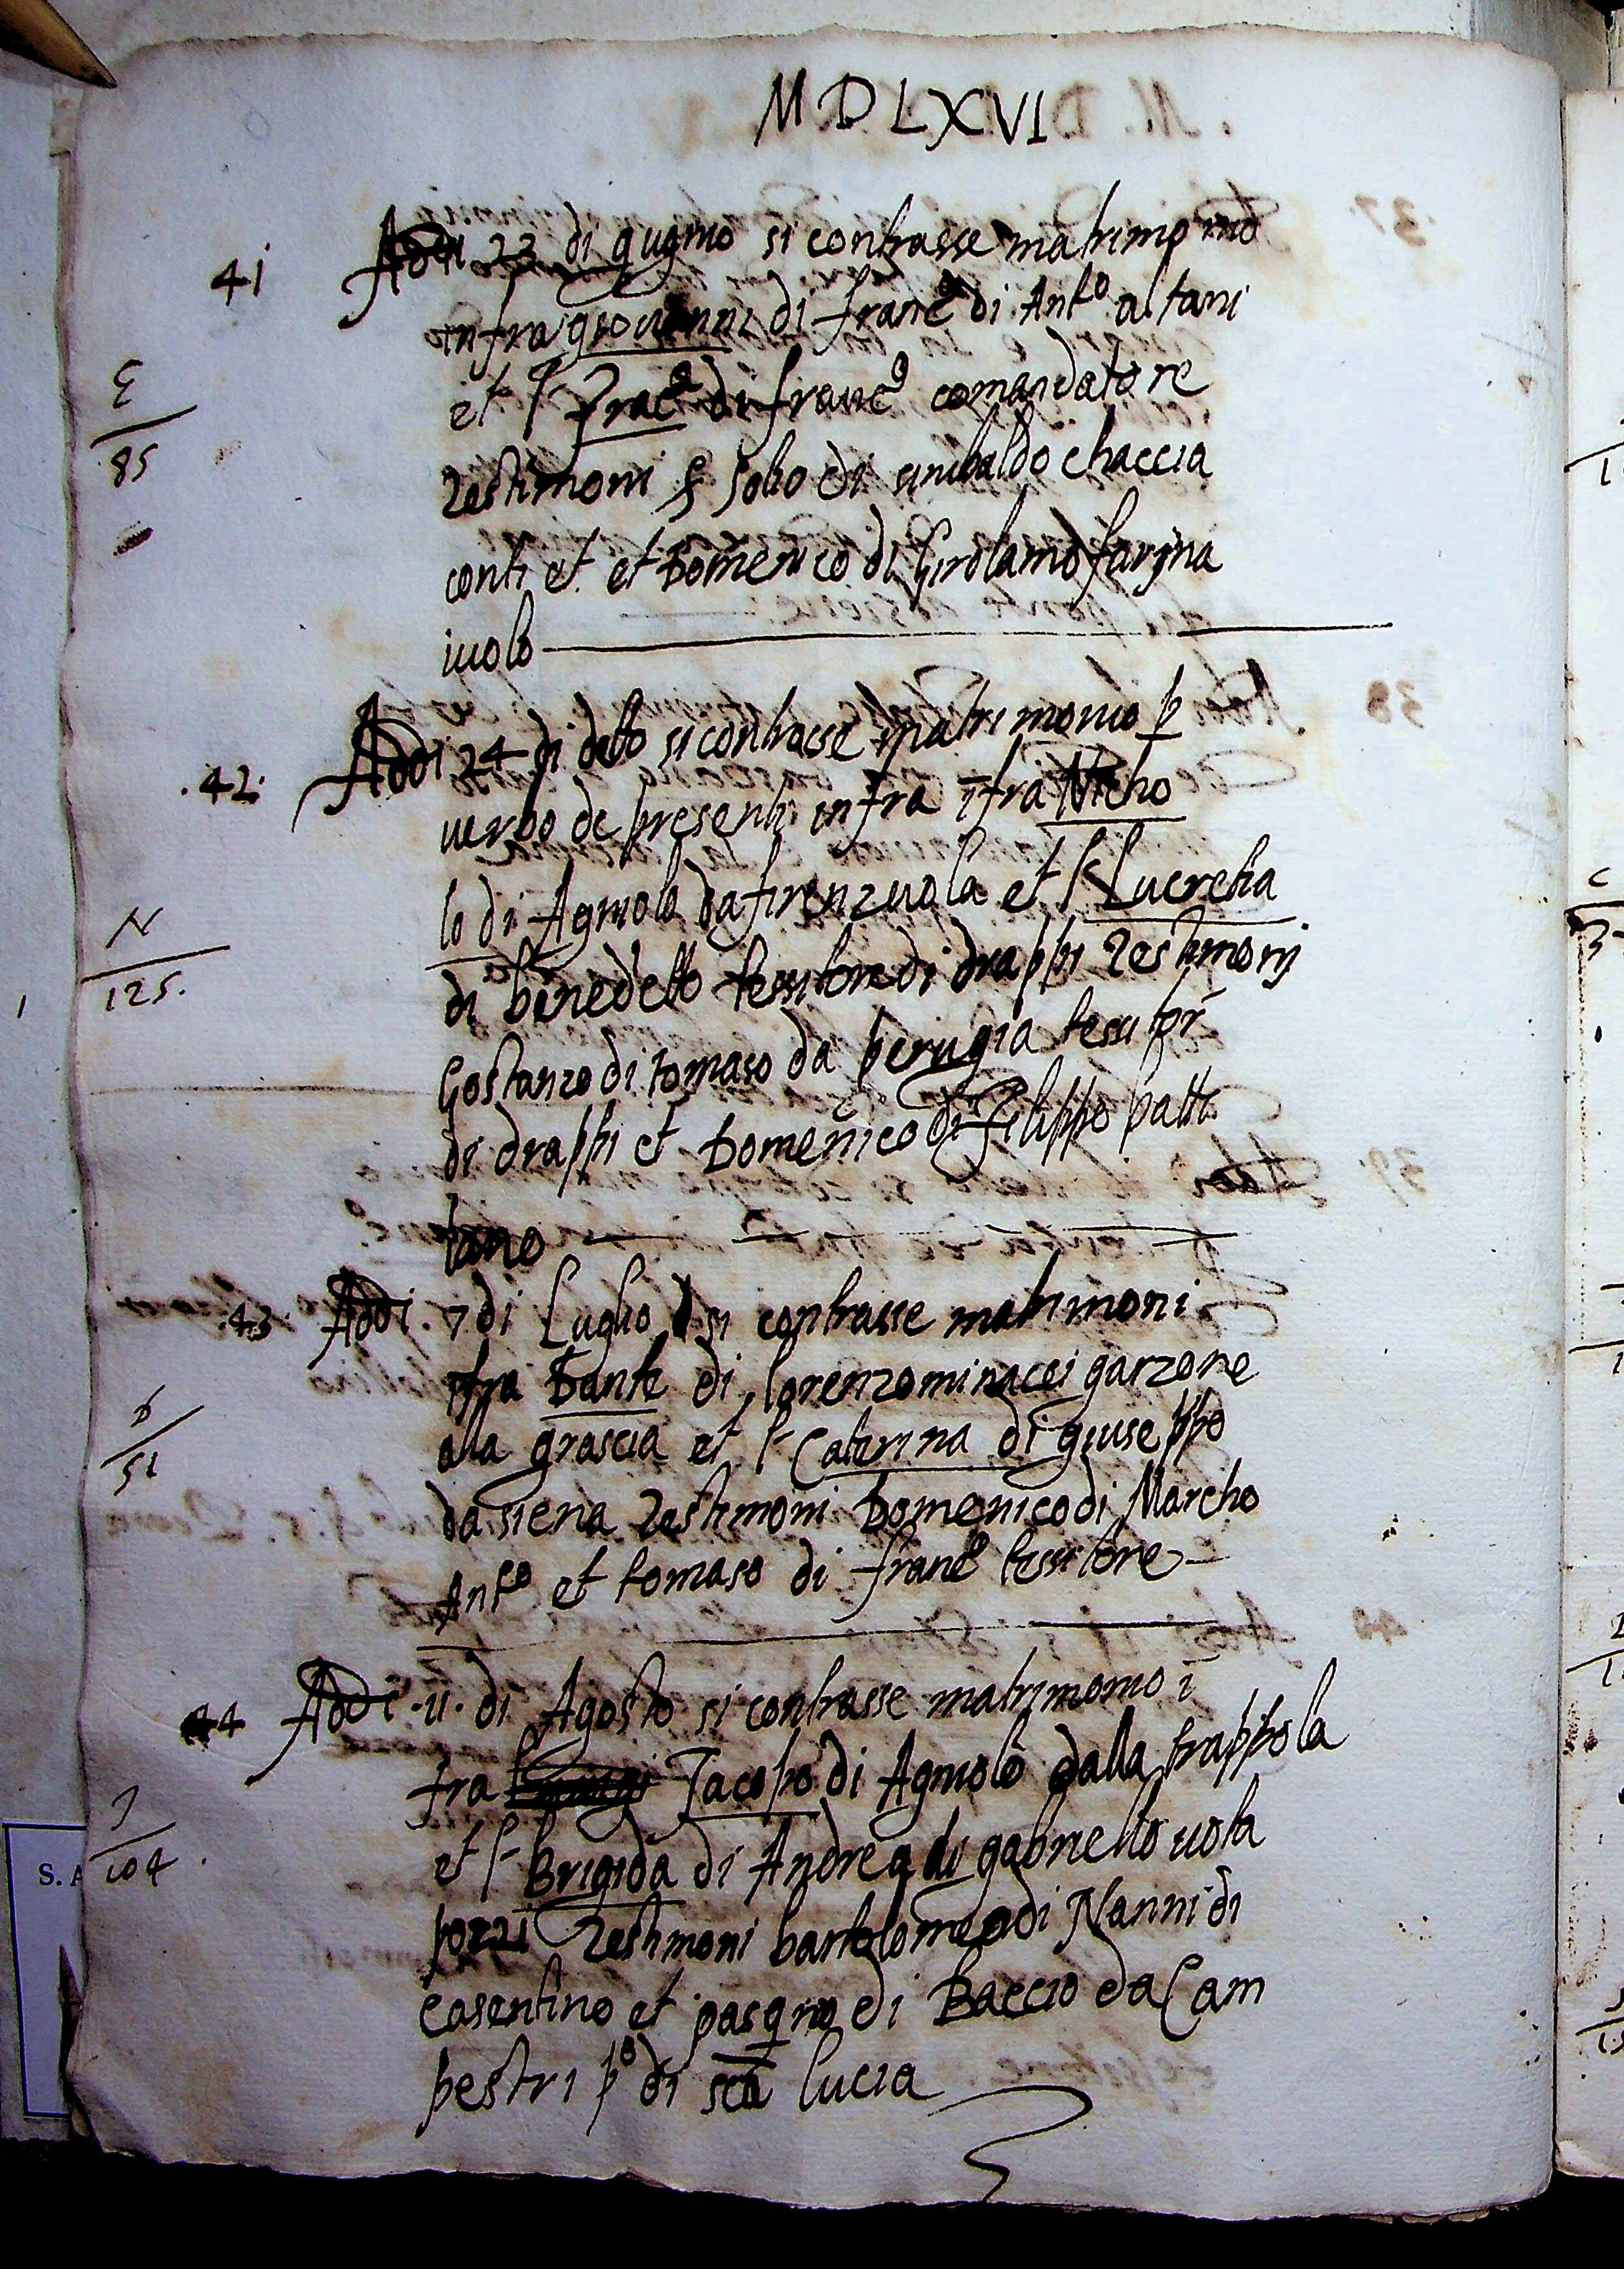 MDLXVI
41
Addi 23 di gugnio si contrasse matrimonio
infra giovanni di francº di Antº altani
et fª di francº comandatore
E
85
Testimoni di sinibaldo chaccia
conti et et Domenico di Girolamo farina
iuolo
.42.
Addi 24 di detto si contrasse matrimonio p
uerbo de presenti infra ifra Nicho
lo di Agniolo da firenzuola et fª Lucretia
N
125.
di benedetto tessitore di drappi Testimonj
Gostanzo di tomaso da perugia tessitor
di drappi et Domenico di filippo patti
tano
.43.
Addi. 7 di Luglio si contrasse matrimoni
ifra Dante di lorenzo minacci garzone
D
51
alla grascia et fª Caterina di giuseppo
da siena Testimoni Domenico di Marcho
Antº et tomaso di francº tessitore
44
Addi .11. di Agosto si contrasse matrimonio i
fra Jacopo di Agniolo dalla trappola
J
104
et fª Brigida di Andrea di gabriello uota
pozzi Testimoni bartolomeo di Nanni di
Casentino et pasqino di Baccio da Cam
pestri pº di sta lucia
S. A